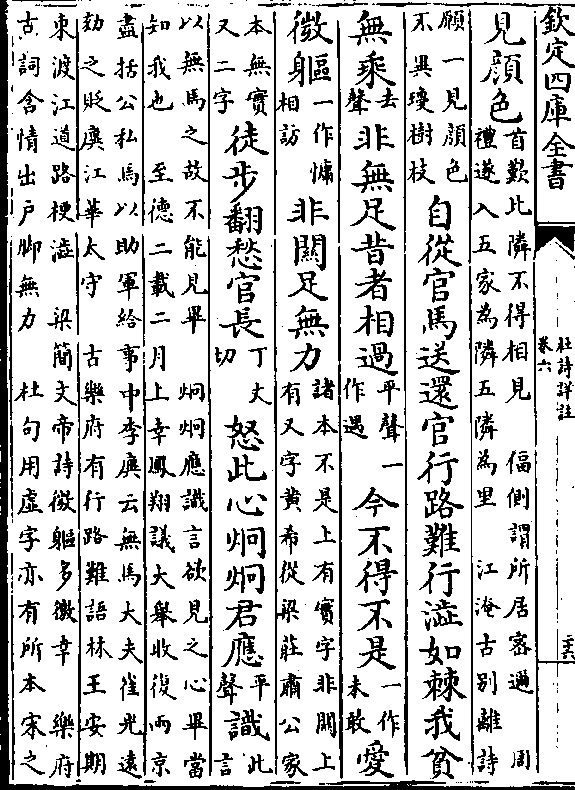 欽定四庫全書
杜詩詳註
卷六
見顏色
首歎比隣不得相見 偪側謂所居密邇 周
禮遂人五家為隣五隣為里 江淹古别離詩
願一見顏色
不異瓊樹枝
自從官馬送還官行路難行澁如棘我貧
無乘
去
聲
非無足昔者相過
平聲一
作遇
今不得不是
一作
未敢
愛
微軀
一作慵
相訪
非關足無力
諸本不是上有實字非關上
有又字黄希從梁莊肅公家
本無實
又二字
徒步翻愁官長
丁丈
切
怒此心炯炯君應
平
聲
識
此
言
以無馬之故不能見畢 炯炯應識言欲見之心畢當
知我也 至德二載二月上幸鳳翔議大舉收復兩京
盡括公私馬以助軍給事中李廙云無馬大夫崔光遠
劾之貶廙江華太守 古樂府有行路難語林王安期
東渡江道路梗澁 梁簡文帝詩微軀多徼幸 樂府
古詞含情出戶脚無力 杜句用虛字亦有所本宋之